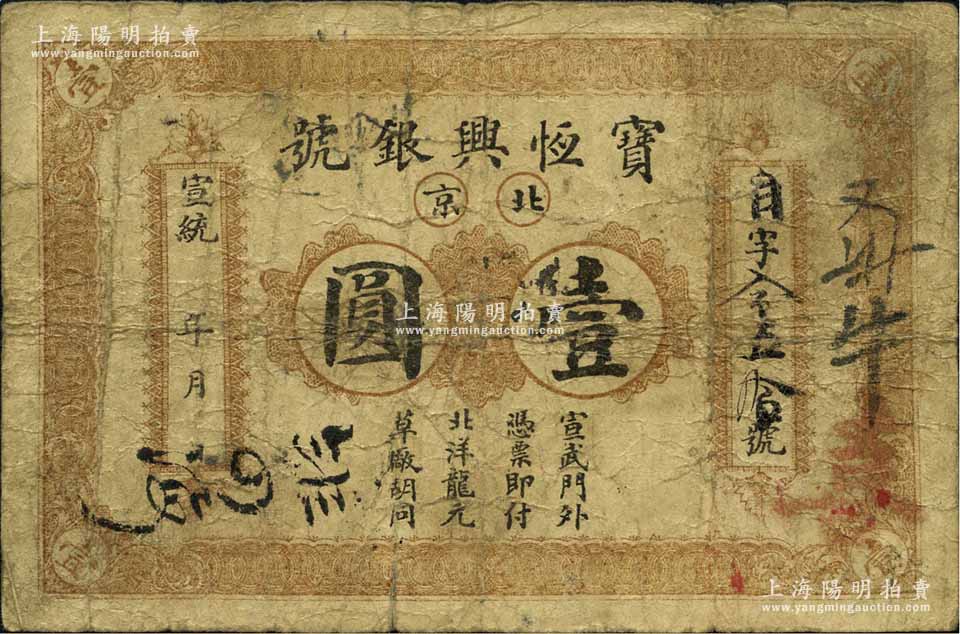 上海陽明拍賣
www.yangmingauction.com
上海陽明拍賣
www.yangmingauction.com
壹
寶恆興銀號
北京
壹圓
宣武門外
憑票即付
北洋龍元
草廠胡同
宣統 年 月
字
號
上海陽明拍賣
www.yangmingauction.com
上海陽明拍賣
www.yangmingauction.com